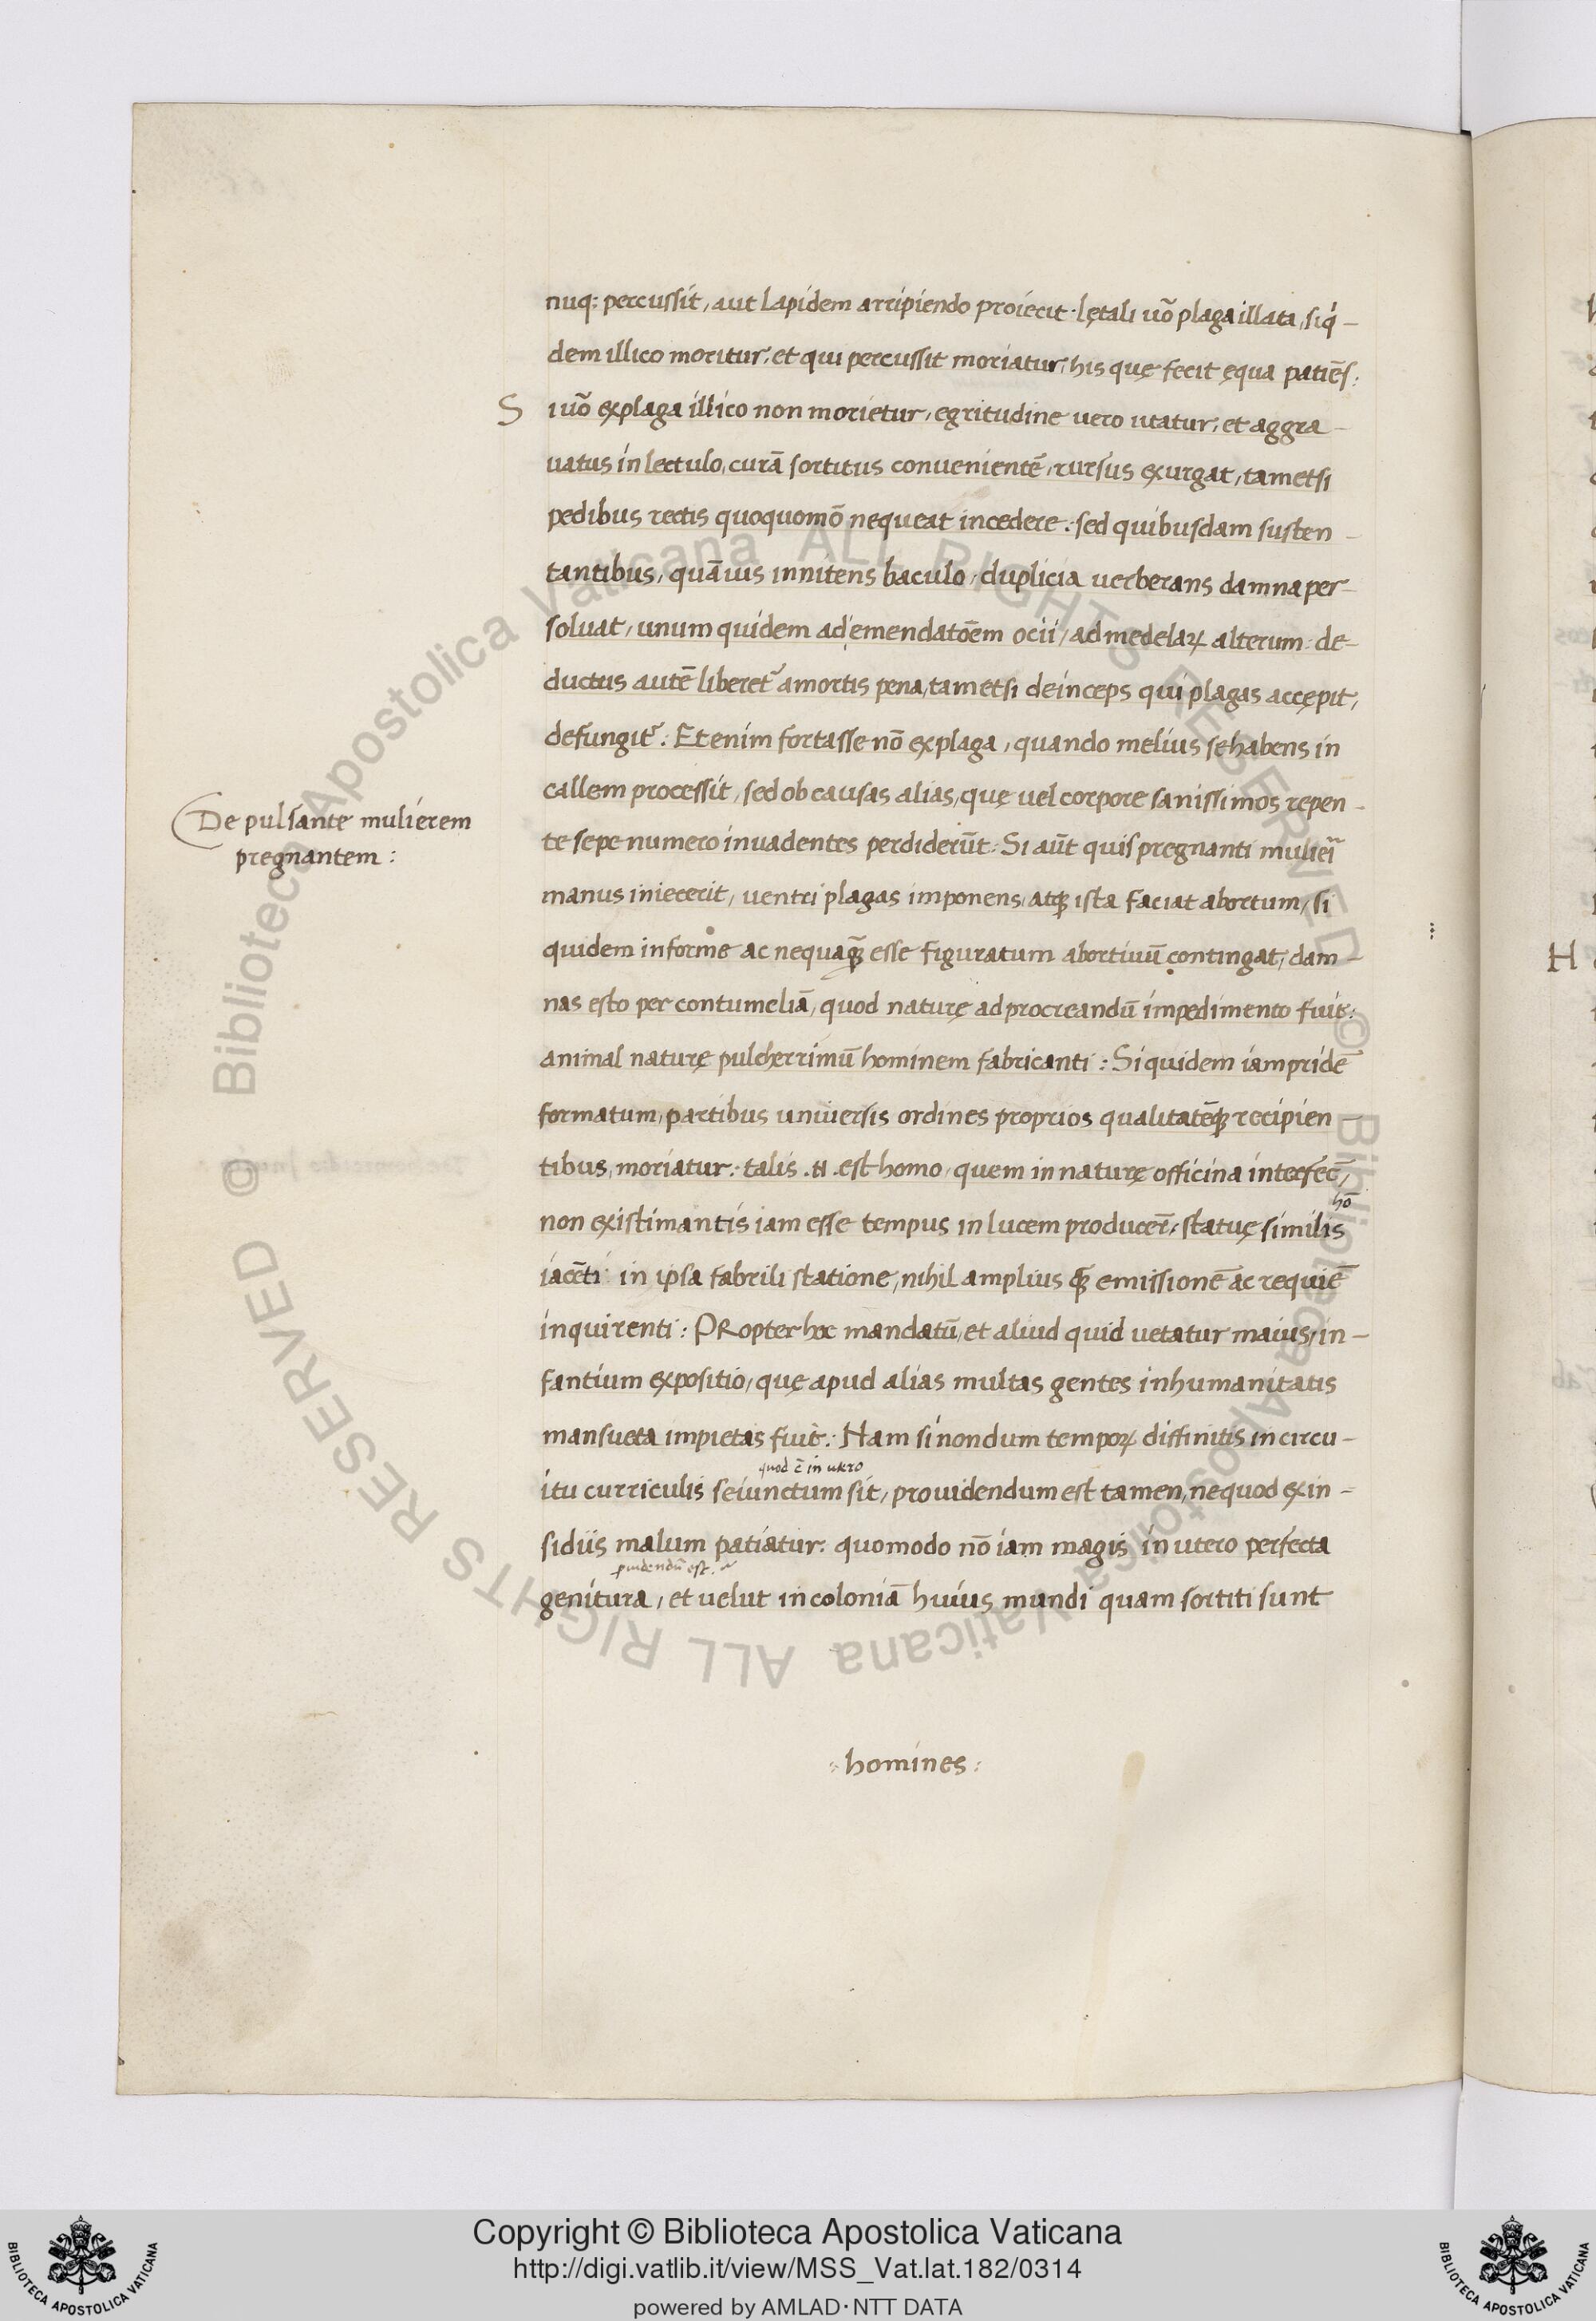 nuq: percussit, aut lapidem arripiendo proiecit · lętali uō plaga illata, siq́ -
dem illico moritur, et qui percussit moriatur, his quę fecit ęqua patiēs:
S iuō ex plaga illico non morietur, egritudine uero utatur, et aggra -
uatus in lectulo, curā sortitus convenientē, rursus exurgat, tametsi
pedibus rectis quoquomō nequeat incedere: sed quibusdam susten -
tantibus, quāuis innitens baculo, duplicia uerberans damna per -
soluat, unum quidem ad emendatōem ocii, ad medelaꝝ alterum: de -
ductus autē liberet᷑ a mortis pena, tametsi deinceps qui plagas accępit,
defungit᷑: Et enim fortasse nō ex plaga, quando melius se habens in
callem processit, sed ob causas alias, quę uel corpore sanissimos repen -
De pulsante mulierem
pregnantem:
te sepe numero inuadentes perdiderūt: Si aūt quis pregnanti muliei᷑
manus iniecerit, uentri plagas imponens, atq̃ ista faciat abortum, si
quidem informe ac nequaq̃ esse figuratum abortiuū contingat, dam -
nas esto per contumeliā, quod naturę ad procreandū impedimento fuit:
animal naturę pulcherrimū hominem fabricanti: Si quidem iam pridē
formatum, partibus universis ordines proprios qualitatēq̃ recipien -
tibus, moriatur: talis .N. est homo, quem in naturę officina interfec̄,
hō
non existimantis iam esse tempus in lucem producer̄, statuę similis
iacēti in ipsa fabrili statione, nihil amplius q̃ emissionē ac requiē
inquirenti: PRopter hoc mandatū, et aliud quid uetatur maius, in -
fantium expositio, quę apud alias multas gentes inhumanitatis
mansueta impietas fuit: Nam si nondum tempoꝝ diffinitis in circu -
quod ē in utero
itu curriculis seiunctum sit, prouidendum est tamen, ne quod ex in -
sidiis malum patiatur: quomodo nō iam magis in utero perfecta
ꝓuidendū est
genitura, et uelut in coloniā huius mundi quam sortiti sunt
homines:
H
Copyright © Biblioteca Apostolica Vaticana
http://digi.vatlib.it/view/MSS_Vat.lat.182/0314
powered by AMLAD·NTT DATA
BIBLIOTECA APOSTOLICA VATICANA
BIBLIOTECA APOSTOLICA VATICANA
© Biblioteca Apostolica Vaticana ALL RIGHTS RESERVED
© Biblioteca Apostolica Vaticana ALL RIGHTS RESERVED